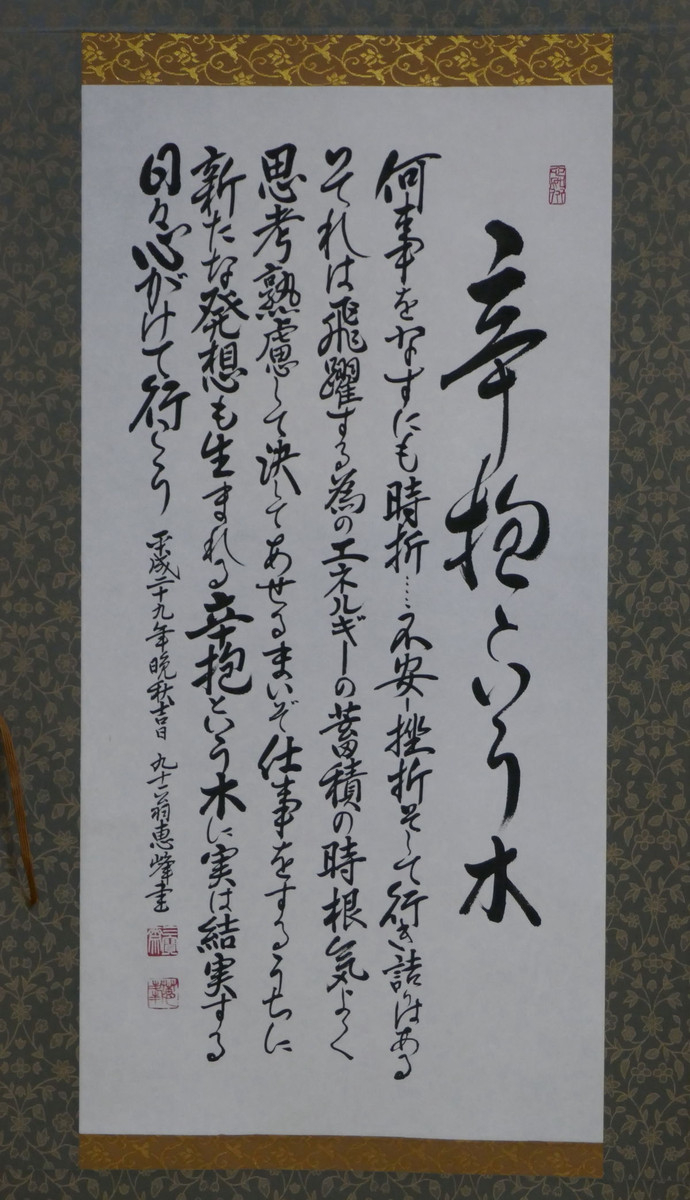 辛抱という木
何事をなすにも時折……不安ー挫折そして行き詰はある
それは飛躍する為のエネルギーの蓄積の時根気よく
思考熟慮して決してあせるまいぞ仕事をするうちに
新たな発想も生まれる辛抱という木に実は結実する
日々心がけて行こう
平成二十九年晩秋吉日 九十六翁恵峰書